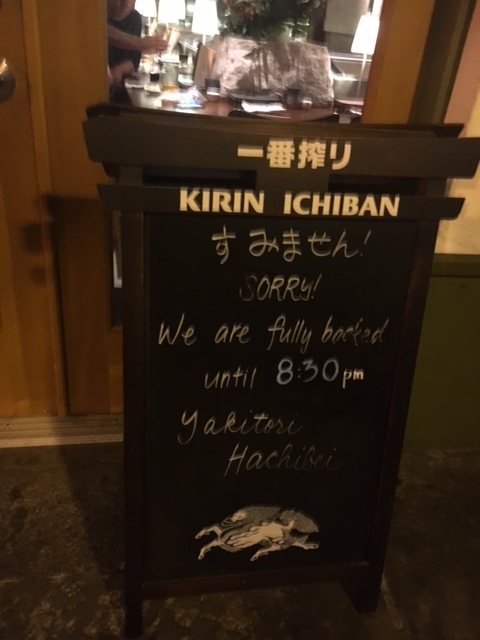 一番搾り
KIRIN ICHIBAN
すみません!
SORRY!
We are fully booked
until 8:30pm
Yakitori
Hachibei